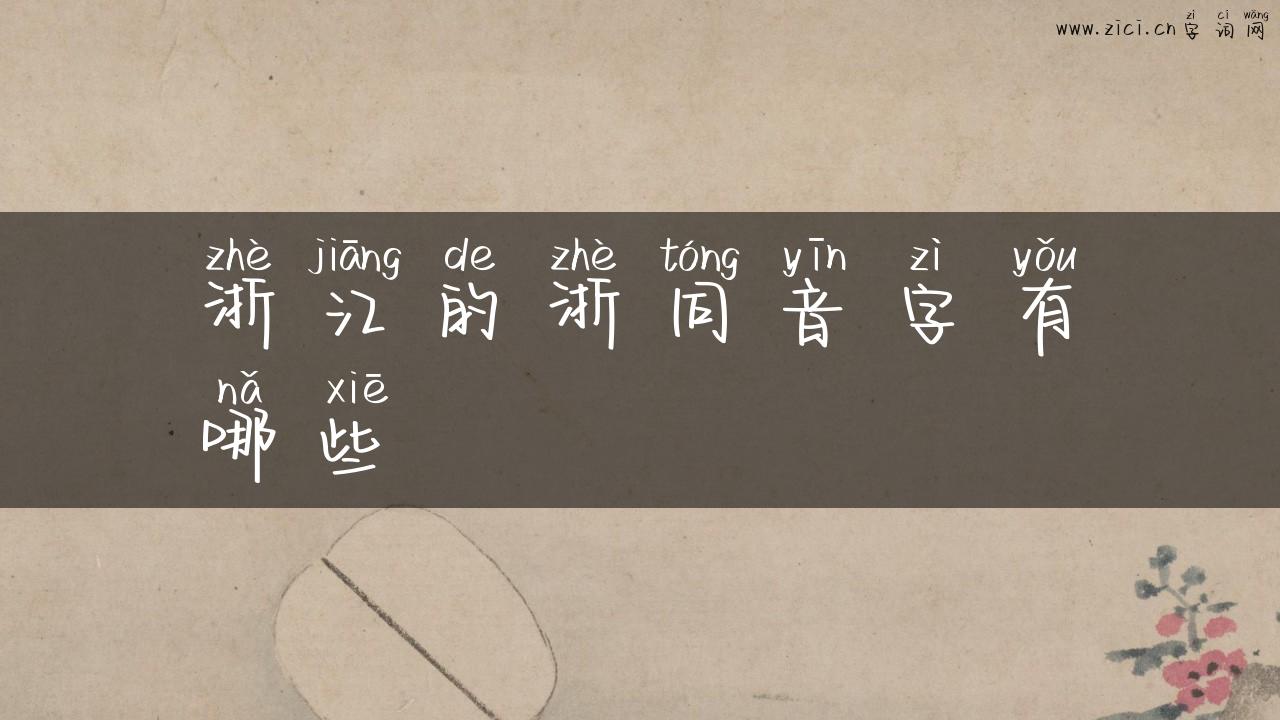 zì cí wǎng
www.zici.cn字词网
zhè jiāng de zhè tóng yīn zì yǒu
浙江的浙同音字有
nǎ xiē
哪些